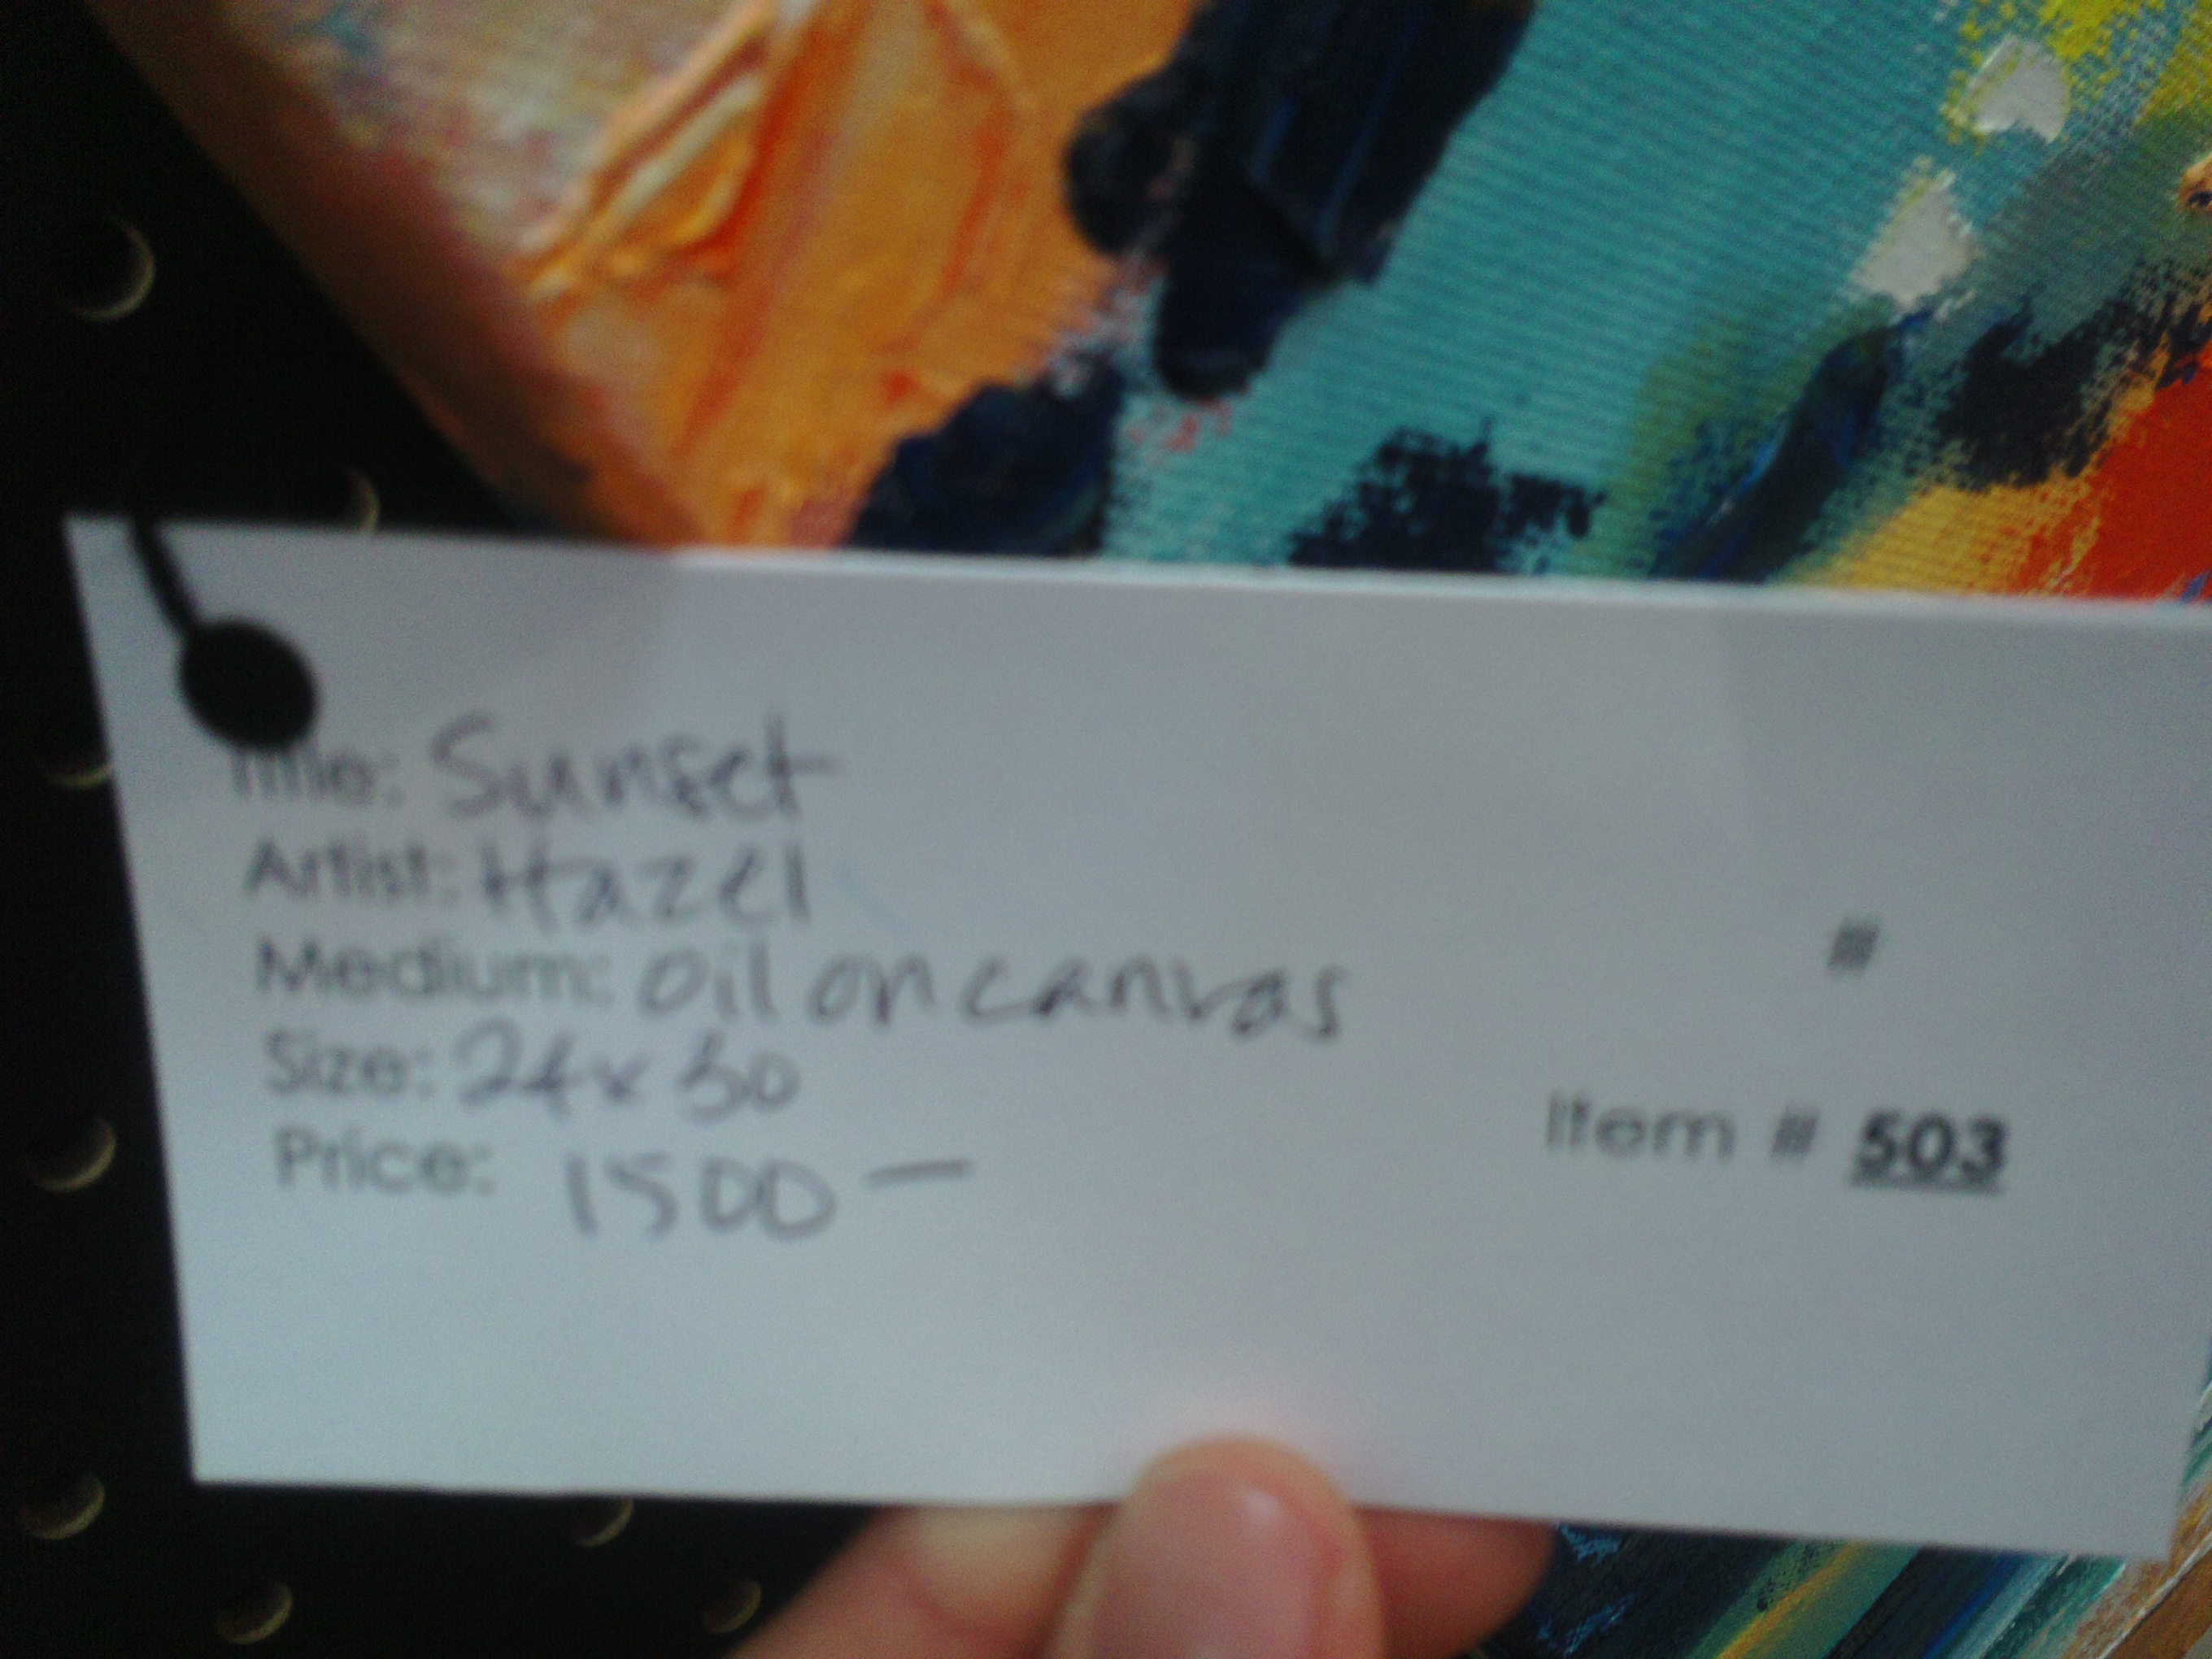 Title: Sunset
Artist: Hazel
Medium: oil on canvas
#
Size: 24x30
Item # 503
Price: 1500 —